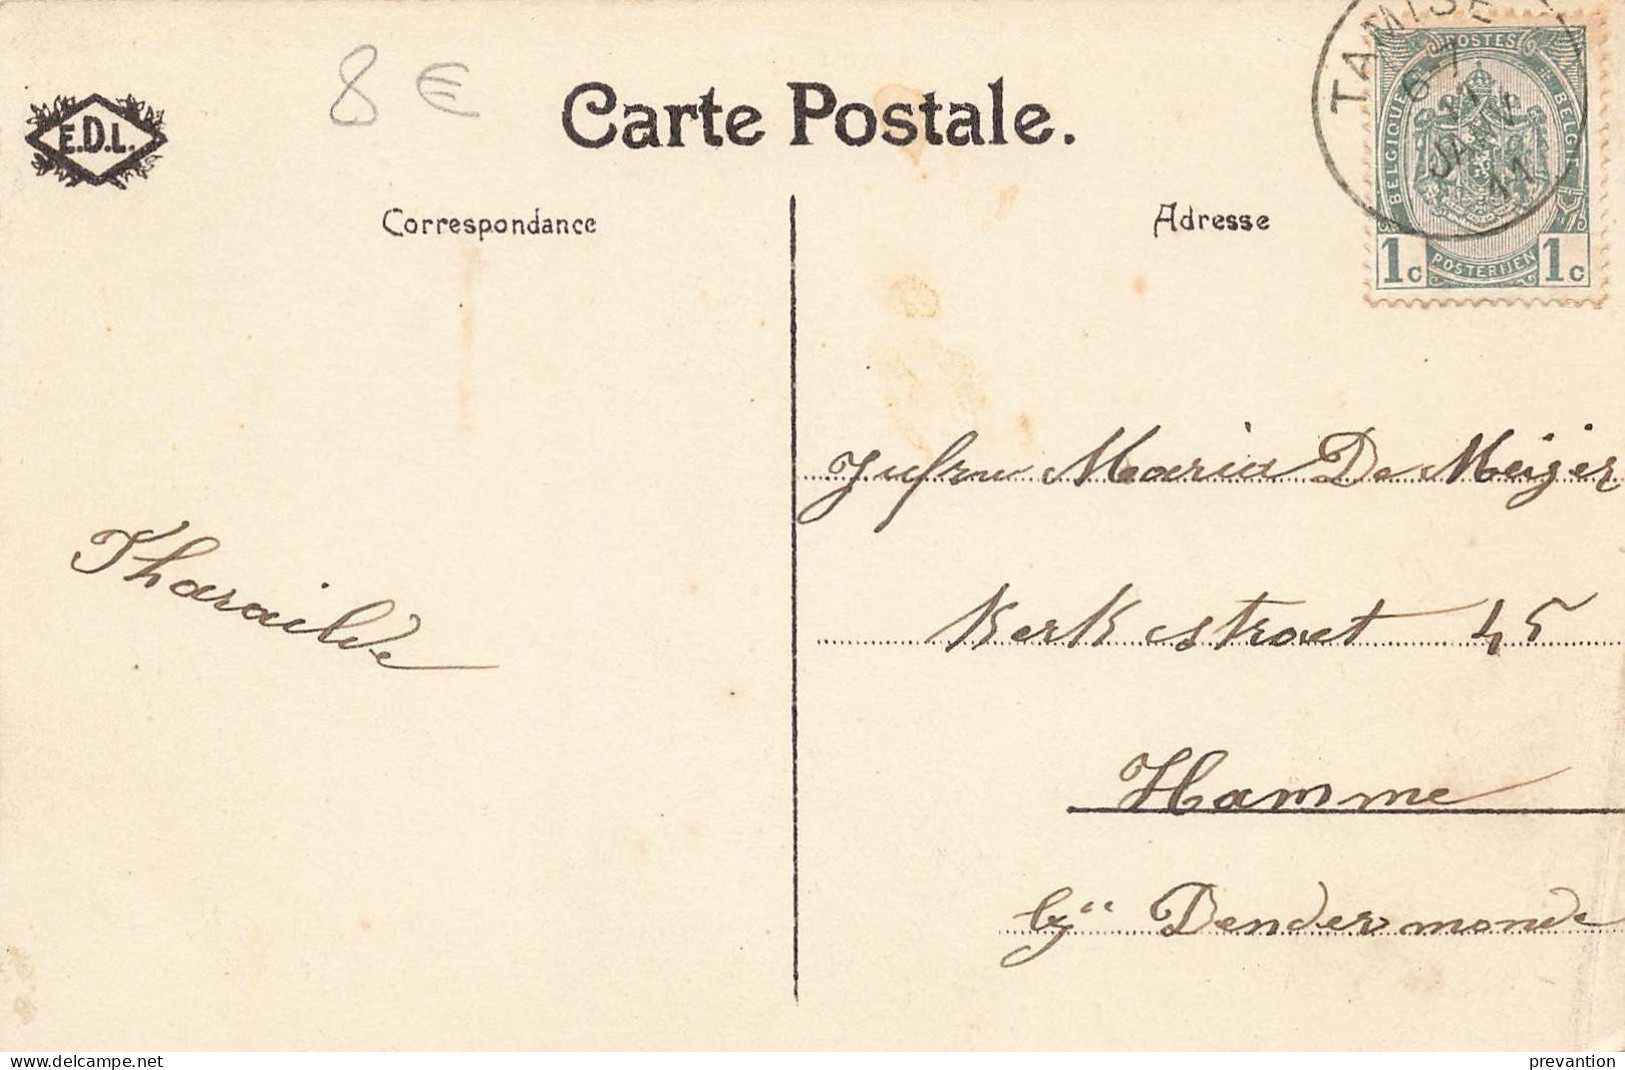 8 €
E.D.L.
Carte Postale.
TAMISE
6-7
JANV
11
POSTES
BELGIQUE
BELGIË
1c
POSTERIJEN
1c
Correspondance
Adresse
Jufrw Maria De Meijer
Tharailde
Kerkstraet 45
Hamme
bÿ Dendermonde
https://www.delcampe.net
prevantion